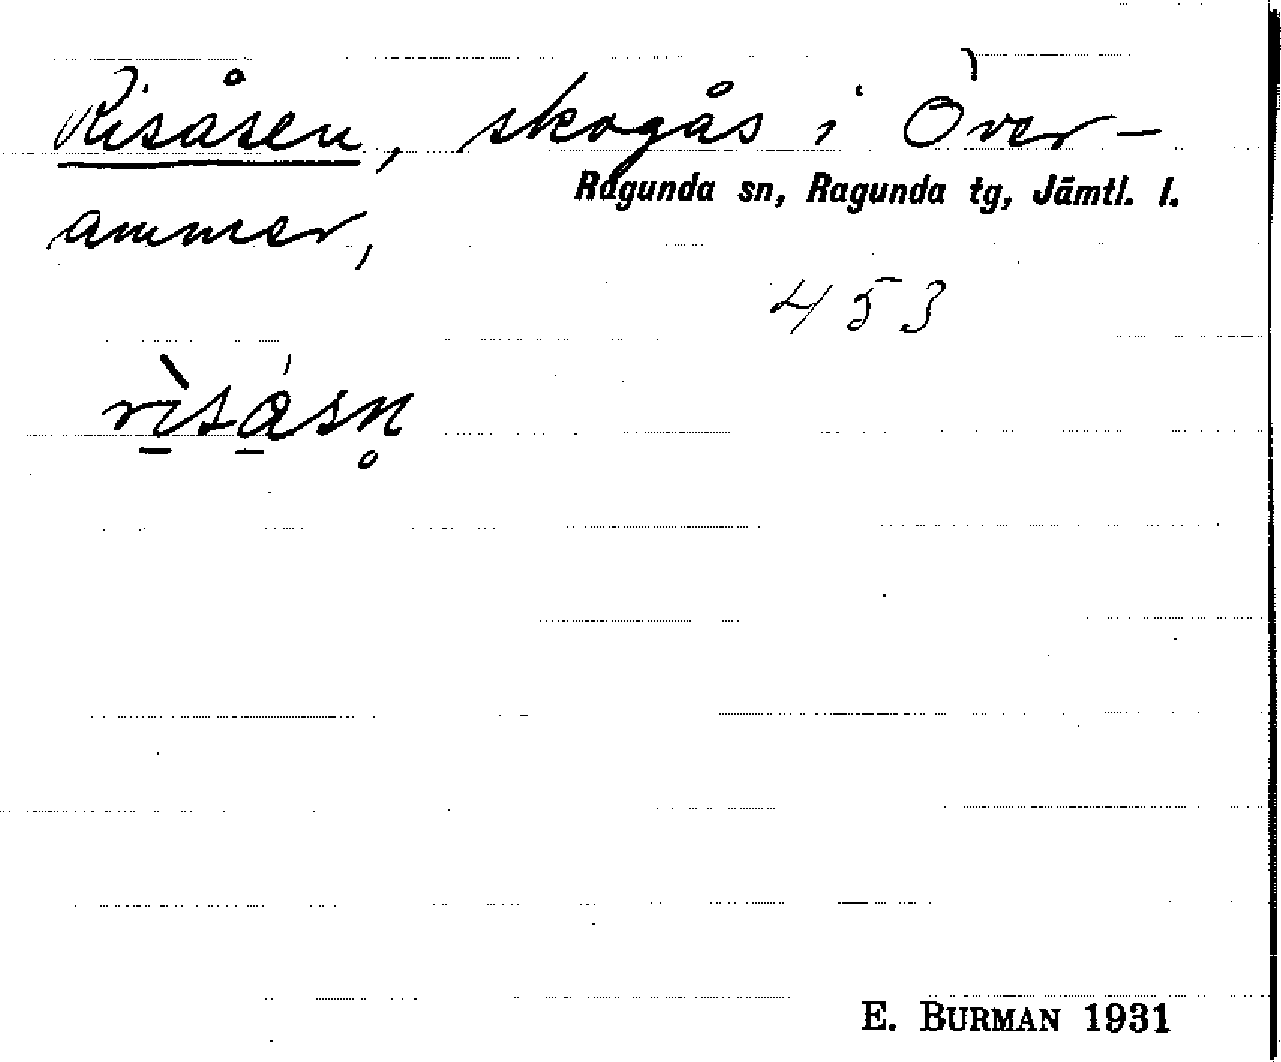 Risåsen, skogås i Över-
Ragunda sn, Ragunda tg, Jämtl. l.
ammer,
453
rı̀sásn̥
E. BURMAN 1931